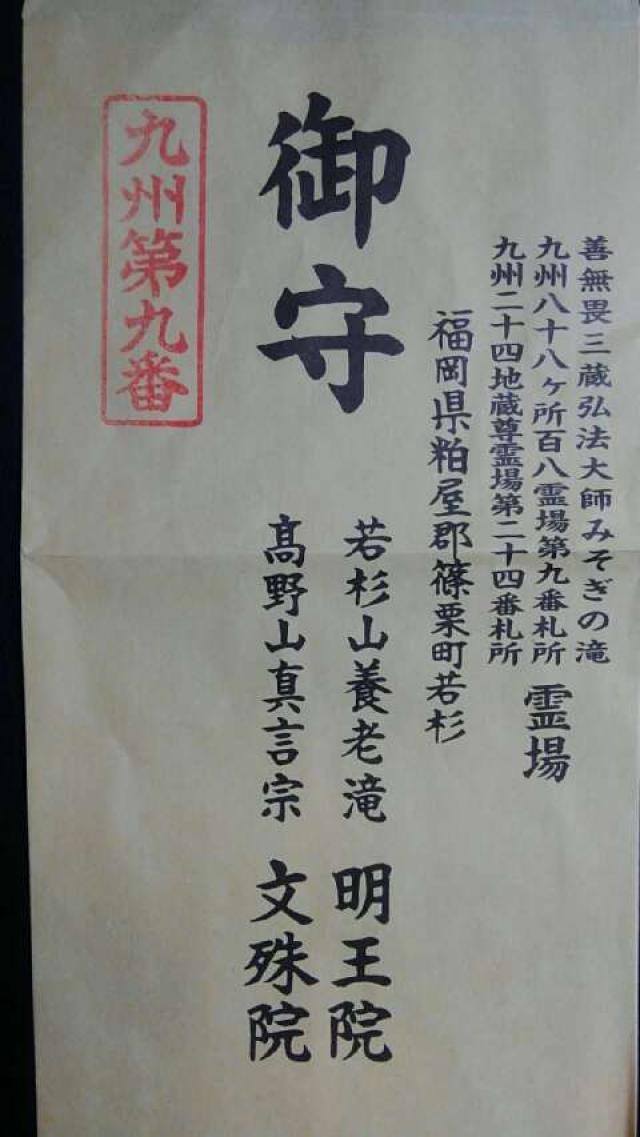 善無畏三蔵弘法大師みそぎの滝
九州八十八ヶ所百八霊場第九番札所
九州二十四地蔵尊霊場第二十四番札所
霊場
福岡県粕屋郡篠栗町若杉
御守
若杉山養老滝 明王院
高野山真言宗 文殊院
九州第九番